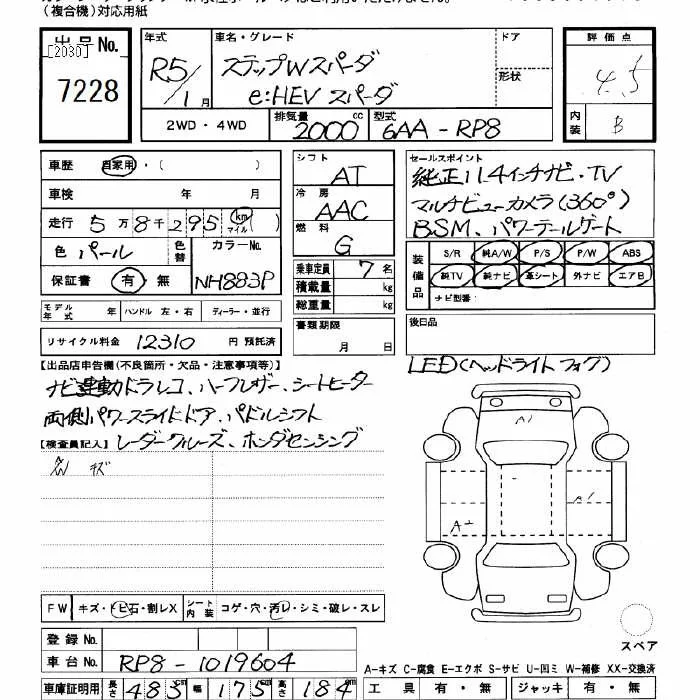 （複合機）対応用紙
出品No. 年式 車名・グレード ドア 評価点
[2030] R5/1月 ステップWスパーダ 4.5
7228 e:HEV スパーダ 形状
2WD・4WD 排気量 2000cc 型式 6AA-RP8 内装 B
車歴 自家用・( )
車検 年 月
走行 5万8千295 km マイル ( )
色 パール 色替 カラーNo. NH883P
保証書 有・無
シフト AT
冷房 AAC
燃料 G
乗車定員 7名
積載量 kg
総重量 kg
書類期限 月 日
セールスポイント
純正11.4インチナビ・TV
マルチビューカメラ(360°)
BSM、パワーテールゲート
装備品 S/R 純A/W P/S P/W ABS
純TV 純ナビ 革シート 外ナビ エアB
ナビ型番:
モデル年式 年 ハンドル 左・右 ディーラー・並行
リサイクル料金 12310 円 預託済
後日品
LED(ヘッドライト フォグ)
【出品店申告欄(不良箇所・欠品・注意事項等)】
ナビ連動ドラレコ、ハーフレザー、シートヒーター
両側パワースライドドア、パドルシフト
【検査員記入】 レーダークルーズ、ホンダセンシング
キズ
A1
A1
A2
FW キズ・トビ石・割レX シート内装 コゲ・穴・汚レ・シミ・破レ・スレ
スペア
登録No.
車台No. RP8-1019604
A-キズ C-腐食 E-エクボ S-サビ U-凹ミ W-補修 XX-交換済
車庫証明用 長さ 483cm 幅 175cm 高さ 184cm 工具 有・無 ジャッキ 有・無